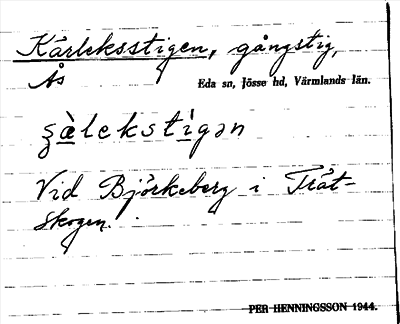 Kärleksstigen, gångstig,
Ås
Eda sn, Jösse hd, Värmlands län.
ʂä̀lekstìgən
Vid Björkeberg i Tråt-
skogen.
PER HENNINGSSON 1944.